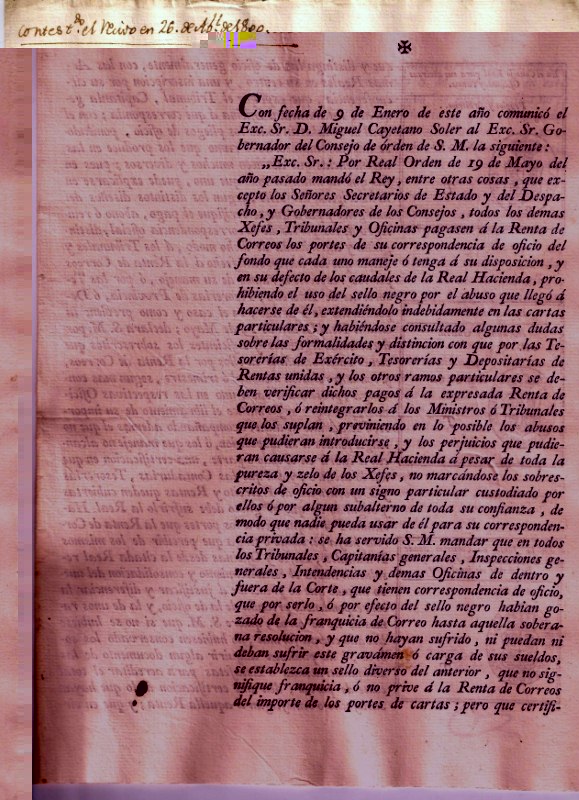 Contest.do el Recivo en 26. de Ab.l de 1800.
✠
Con fecha de 9 de Enero de este año comunicó el
Exc. Sr. D. Miguel Cayetano Soler al Exc. Sr. Go-
bernador del Consejo de órden de S. M. la siguiente:
„Exc. Sr.: Por Real Orden de 19 de Mayo del
año pasado mandó el Rey, entre otras cosas, que ex-
cepto los Señores Secretarios de Estado y del Despa-
cho, y Gobernadores de los Consejos, todos los demas
Xefes, Tribunales y Oficinas pagasen á la Renta de
Correos los portes de su correspondencia de oficio del
fondo que cada uno maneje ó tenga á su disposicion, y
en su defecto de los caudales de la Real Hacienda, pro-
hibiendo el uso del sello negro por el abuso que llegó á
hacerse de él, extendiéndolo indebidamente en las cartas
particulares; y habiéndose consultado algunas dudas
sobre las formalidades y distincion con que por las Te-
sorerías de Exército, Tesorerías y Depositarías de
Rentas unidas, y los otros ramos particulares se de-
ben verificar dichos pagos á la expresada Renta de
Correos, ó reintegrarlos á los Ministros ó Tribunales
que los suplan, previniendo en lo posible los abusos
que pudieran introducirse, y los perjuicios que pudie-
ran causarse á la Real Hacienda á pesar de toda la
pureza y zelo de los Xefes, no marcándose los sobres-
critos de oficio con un signo particular custodiado por
ellos ó por algun subalterno de toda su confianza, de
modo que nadie pueda usar de él para su corresponden-
cia privada: se ha servido S. M. mandar que en todos
los Tribunales, Capitanías generales, Inspecciones ge-
nerales, Intendencias y demas Oficinas de dentro y
fuera de la Corte, que tienen correspondencia de oficio,
que por serlo, ó por efecto del sello negro habian go-
zado de la franquicia de Correo hasta aquella sobera-
na resolucion, y que no hayan sufrido, ni puedan ni
deban sufrir este gravámen ó carga de sus sueldos,
se establezca un sello diverso del anterior, que no sig-
nifique franquicia, ó no prive á la Renta de Correos
del importe de los portes de cartas; pero que certifi-